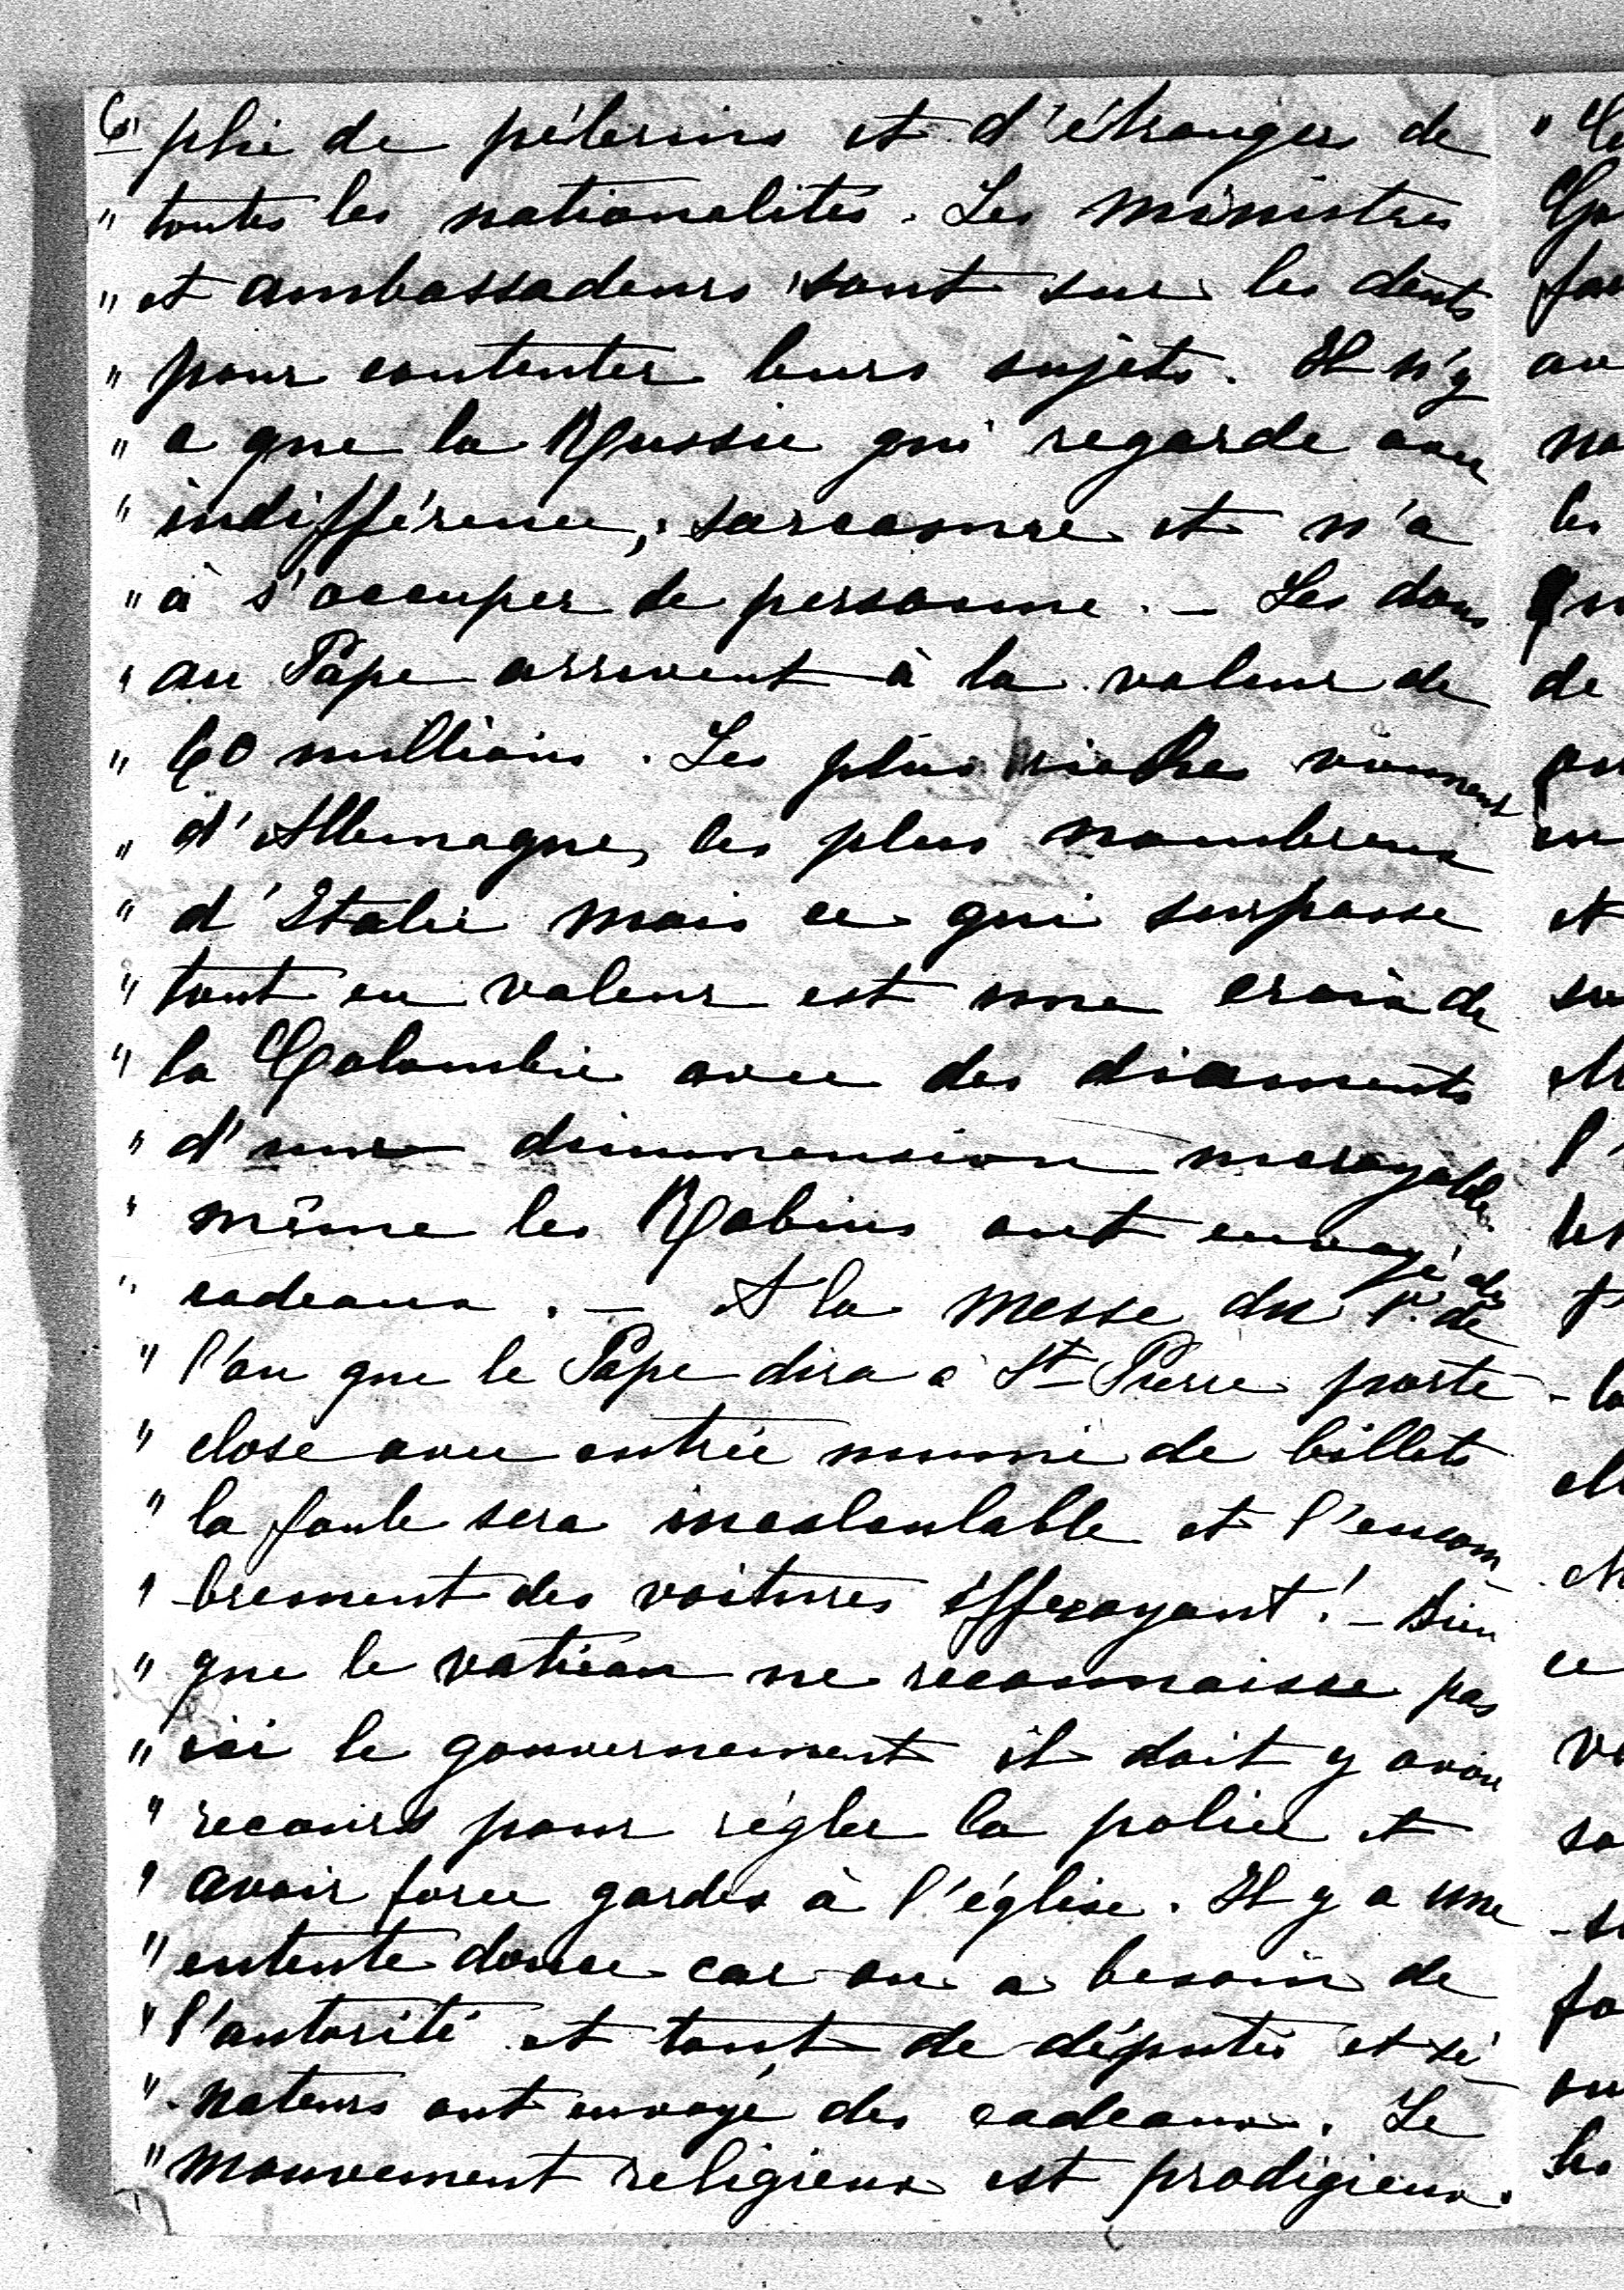 6) plie de pélerins et d'étrangers de
" toutes les nationalités. Les ministres
" et ambassadeurs sont sur les dents
" pour contenter leurs sujets. Il n'y
" a que la Russie qui regarde avec
" indifférence, sarcasme et n'a
" à s'occuper de personne. — Les dons
" au Pape arrivent à la valeur de
" 60 millions. Les plus riches viennent
" d'Allemagne, les plus nombreux
" d'Italie mais ce qui surpasse
" tout en valeur est une croix de
" la Colombie avec des diamants
" d'une dimmension incroyable
" même les Rabins ont envoyé des
" cadeaux. — A la messe du 1er de
" l'an que le Pape dira à St Pierre porte
" close avec entrée munie de billets
" la foule sera incalculable et l'encom
" -brement des voitures éffrayant! — Bien
" que le vatican ne reconnaisse pas
" ici le gouvernement il doit y avoir
" recours pour régler la police et
" avoir force gardes à l'église. Il y a une
" entente douce car on a besoin de
" l'autorité et tant de députés et sé-
" -nateurs ont envoyé des cadeaux. Le
" mouvement religieux est prodigieux.